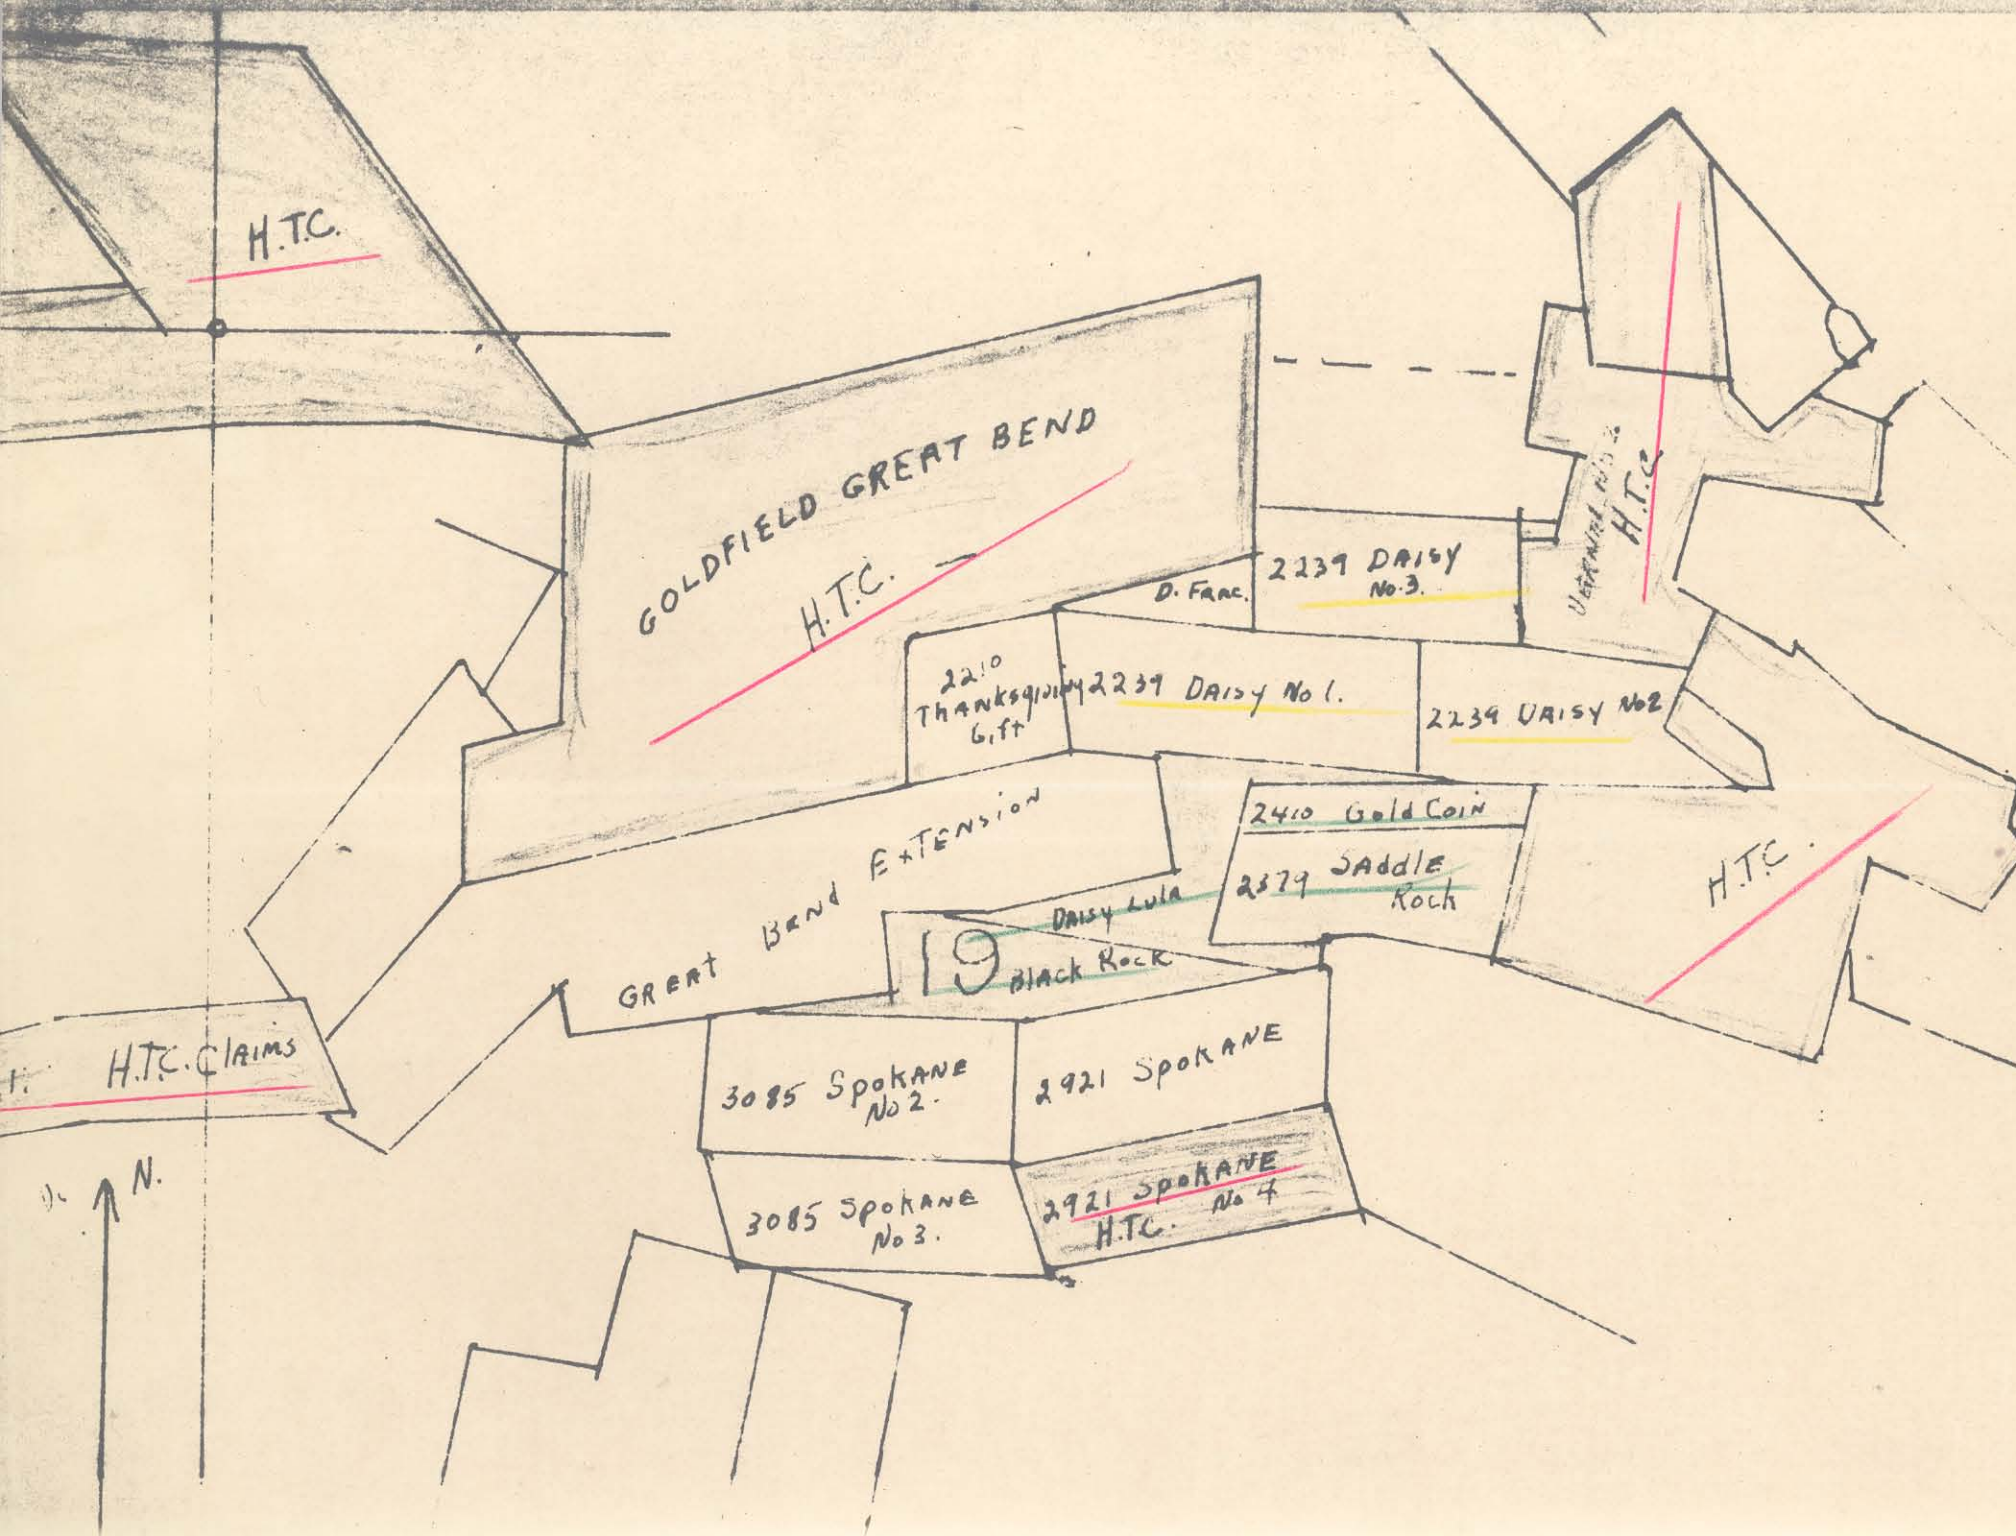 H.T.C.
GOLDFIELD GREAT BEND
H.T.C.
H.T.C
D. Frac.
2239 DAISY
No.3.
2210
THANKSgiving
Gift
2239 DAISY No 1.
2239 DAISY No2
2410 Gold Coin
2379 SAddle
Rock
H.T.C.
GREAT BEND EXTENSION
DAISY LULA
19
BLACK Rock
H.T.C. CLAIMS
3085 SpokANE
No 2.
2921 SpokANE
N.
3085 SpokANE
No 3.
2921 SpokANE
No 4
H.T.C.